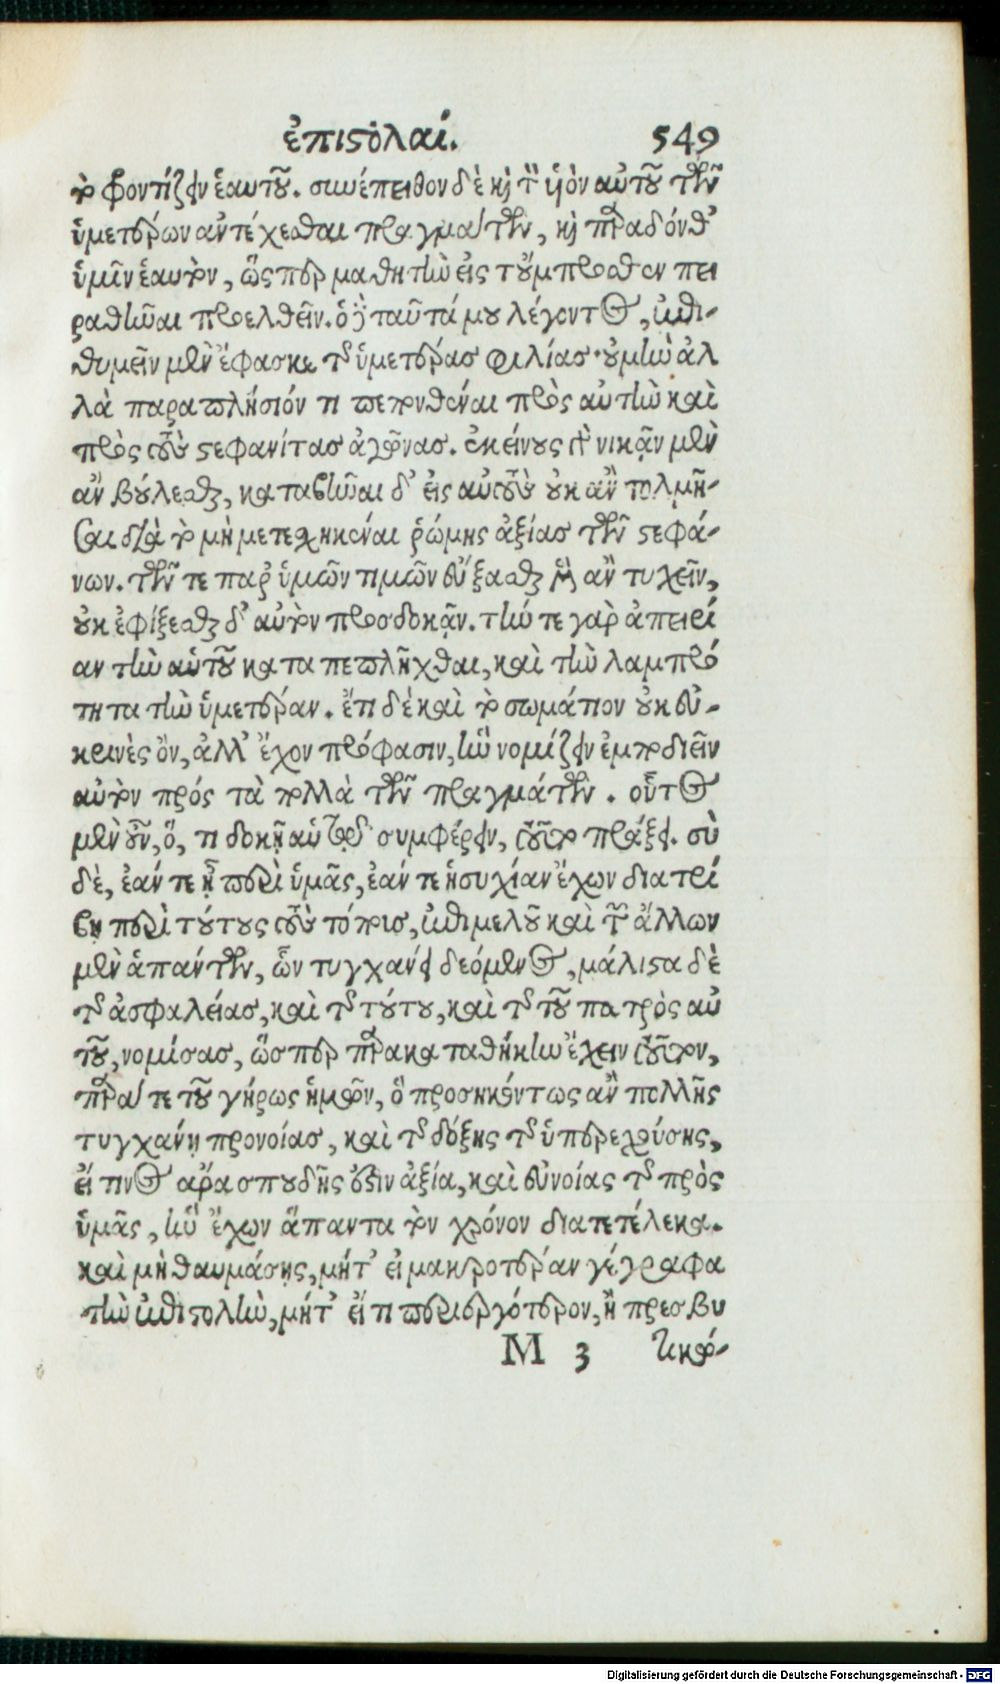 ἐπιστολαί. 549
τὸ φροντίζειν ἑαυτοῦ. συνέπειθον δὲ καὶ τὸν ἱὸν αὐτοῦ τῶν
ὑμετέρων ἀντέχεσθαι πραγμάτων, καὶ παραδόνθ᾽
ὑμῖν ἑαυτὸν, ὥσπερ μαθητὴν εἰς τοὔμπροσθεν πει
ραθῆναι προελθεῖν. ὁ δὲ ταῦτά μου λέγοντος, ἐπι-
θυμεῖν μὲν ἔφασκε τῆς ὑμετέρας φιλίας· οὐ μὴν ἀλ
λὰ παραπλήσιόν τι πεπονθέναι πρὸς αὐτὴν καὶ
πρὸς τοὺς στεφανίτας ἀγῶνας. ἐκείνους τε γὰρ νικᾶν μὲν
ἂν βούλεσθαι, καταβῆναι δ᾽ εἰς αὐτοὺς οὐκ ἂν τολμῆ-
σαι διὰ τὸ μὴ μετεσχηκέναι ῥώμης ἀξίας τῶν στεφά-
νων. τῶν τε παρ᾽ ὑμῶν τιμῶν εὔξασθαι μὲν ἂν τυχεῖν,
οὐκ ἐφίξεσθαι δ᾽ αὐτῶν προσδοκᾶν. τήν τε γὰρ ἀπειρί
αν τὴν αὑτοῦ καταπεπλῆχθαι, καὶ τὴν λαμπρό
τητα τὴν ὑμετέραν. ἔτι δὲ καὶ τὸ σωμάτιον οὐκ εὐ-
κρινὲς ὂν, ἀλλ᾽ ἔχον πρόφασιν, ἣν νομίζειν ἐμποδιεῖν
αὐτὸν πρός τὰ πολλὰ τῶν πραγμάτων. οὗτος
μὲν οὖν, ὅ, τι δοκῇ αὑτῷ συμφέρειν, τοῦτο πράξει. σὺ
δὲ, ἐάν τε ᾖ περὶ ὑμᾶς, ἐάν τε ἡσυχίαν ἔχων διατρί
βῃ περὶ τούτους τοὺς τόπους, ἐπιμελοῦ καὶ τῶν ἄλλων
μὲν ἁπάντων, ὧν τυγχάνει δεόμενος, μάλιστα δὲ
τῆς ἀσφαλείας, καὶ τῆς τούτου, καὶ τῆς τοῦ πατρὸς αὐ
τοῦ, νομίσας, ὥσπερ παρακαταθήκην ἔχειν τοῦτον,
παρά τε τοῦ γήρως ἡμῶν, ὃ προσηκόντως ἂν πολλῆς
τυγχάνῃ προνοίας, καὶ τῆς δόξης τῆς ὑπαρχούσης,
εἴ τινος ἄρα σπουδῆς ἐστὶν ἀξία, καὶ εὐνοίας τῆς πρὸς
ὑμᾶς, ἣν ἔχων ἅπαντα τὸν χρόνον διατετέλεκα.
καὶ μὴ θαυμάσῃς, μήτ᾽ εἰ μακροτέραν γέγραφα
τὴν ἐπιστολὴν, μήτ᾽ εἴ τι περιεργότερον, ἢ πρεσβυ
M 3 τικώ-
Digitalisierung gefördert durch die Deutsche Forschungsgemeinschaft - DFG